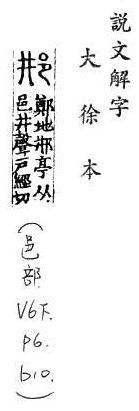 說文解字
大徐本
邢 鄭地邢亭从
邑井聲戶經切
(邑部
V6下.
P6.
b10.)